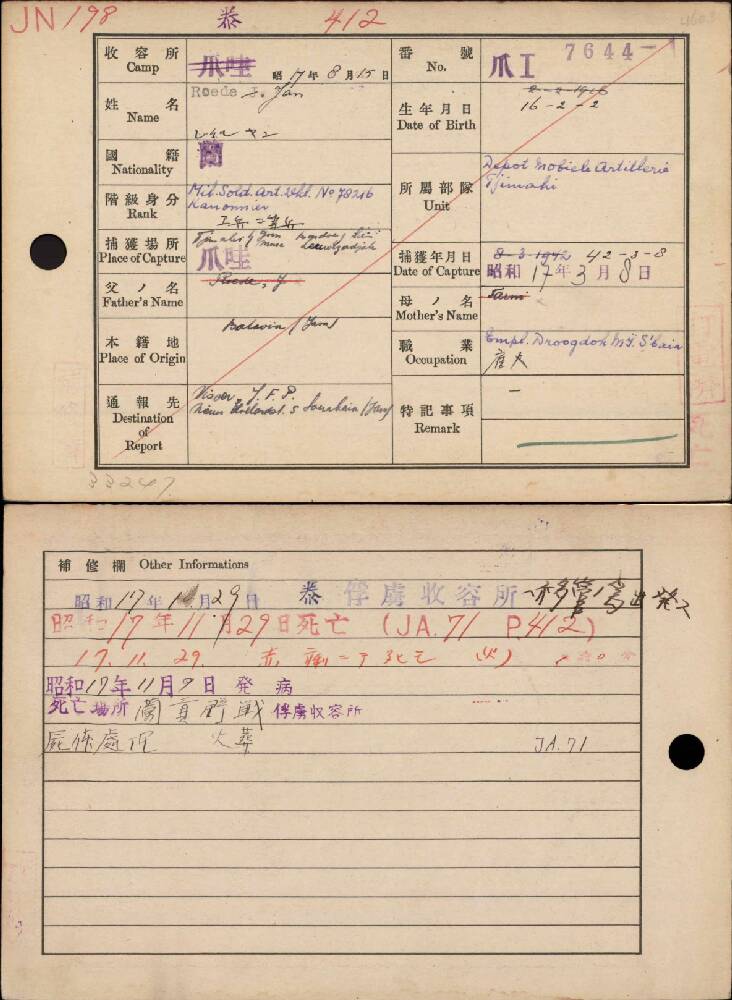 JN 198
泰
412
收容所
Camp
爪哇
昭17年8月15日
番號
No.
爪I 7644
姓名
Name
Roede J. Jan
生年月日
Date of Birth
8-2-1916
16-2-2
國籍
Nationality
蘭
階級身分
Rank
Mil. Sold. Art. No 78216
Kanonnier
所屬部隊
Unit
Depot Mobiele Artillerie
Tjimahi
捕獲場所
Place of Capture
爪哇
捕獲年月日
Date of Capture
8-3-1942 42-3-8
昭和17年3月8日
父ノ名
Father's Name
Roede, J
母ノ名
Mother's Name
本籍地
Place of Origin
Batavia (Java)
職業
Occupation
Empl. Droogdok Mij. S'baia
通報先
Destination
of
Report
Visser, J. F. P.
Soerabaia (Java)
特記事項
Remark
—
33247
補修欄 Other Informations
昭和17年11月29日 泰俘虜收容所
昭和17年11月29日死亡 (JA.71 P.412)
17.11.29. 赤痢ニテ死亡
昭和17年11月7日発病
死亡場所 俘虜收容所
屍体處況 火葬 JA.71